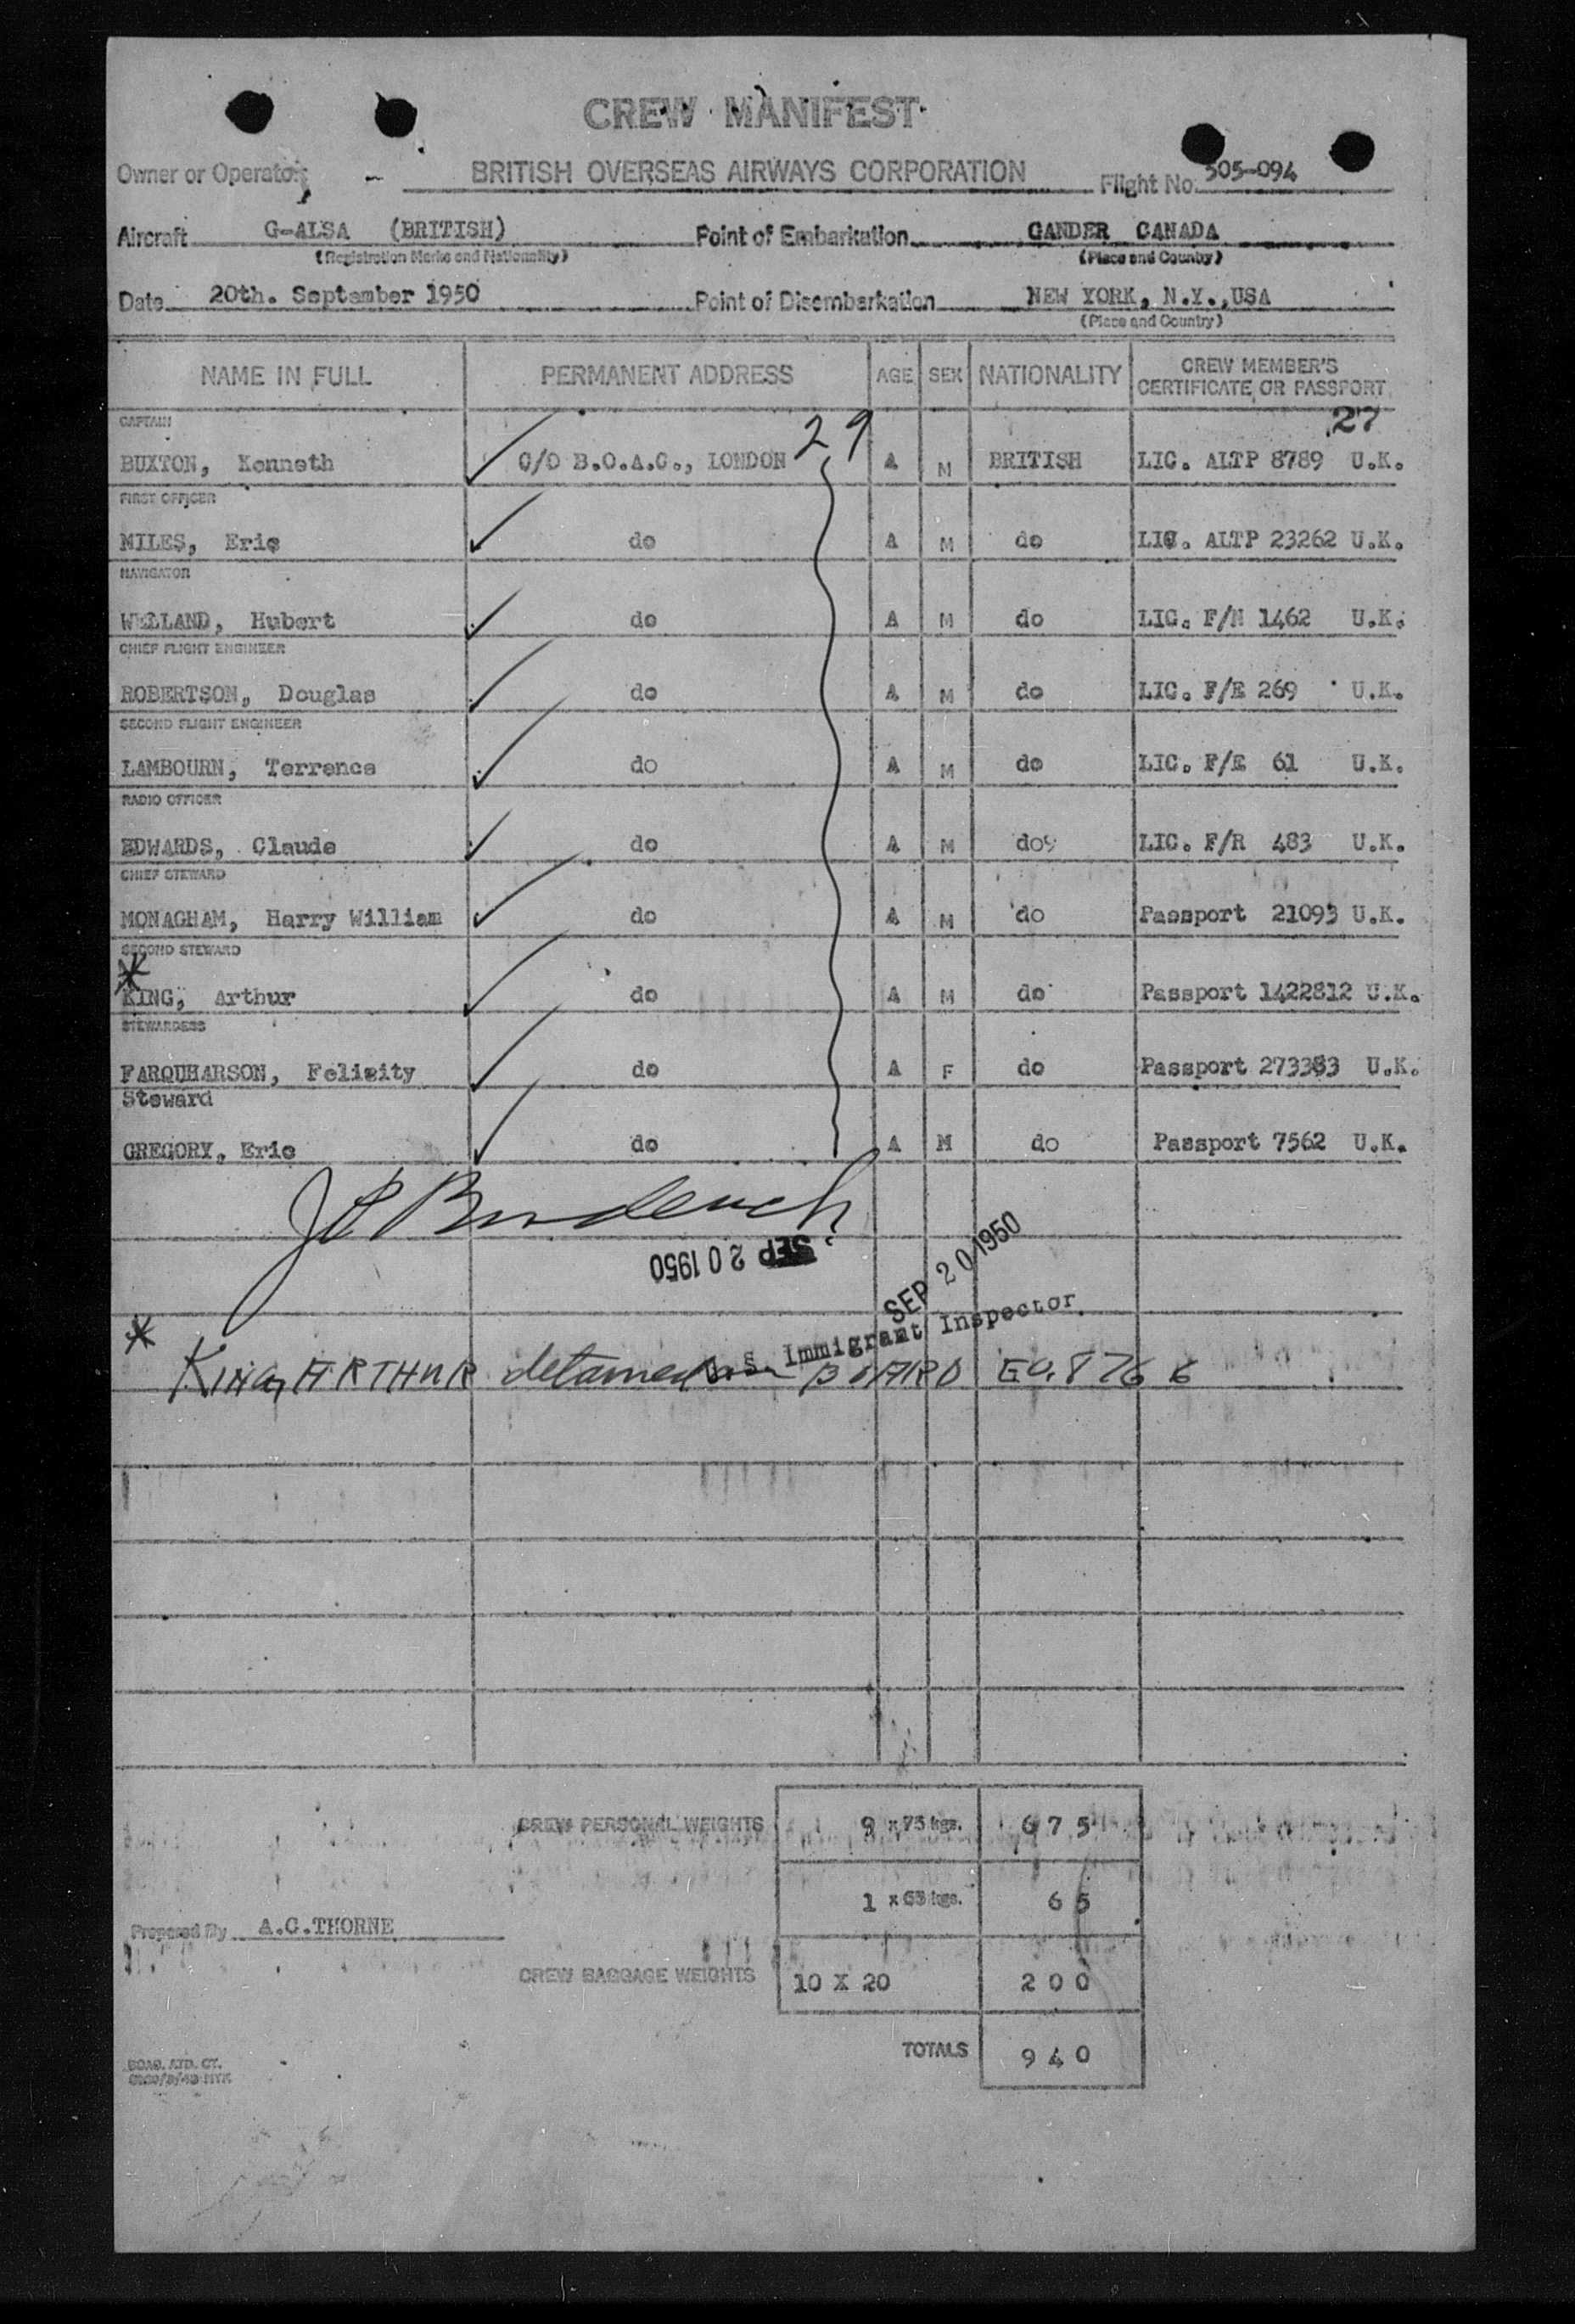 CREW MANIFEST
Owner or Operator BRITISH OVERSEAS AIRWAYS CORPORATION Flight No. 505-094
Aircraft G-ALSA (BRITISH) Point of Embarkation GANDER CANADA
(Registration Marks and Nationality) (Place and Country)
Date 20th. September 1950 Point of Disembarkation NEW YORK, N.Y.,USA
(Place and Country)
NAME IN FULL PERMANENT ADDRESS AGE SEX NATIONALITY CREW MEMBER'S CERTIFICATE OR PASSPORT
CAPTAIN 29 27
BUXTON, Kenneth C/O B.O.A.C., LONDON A M BRITISH LIC. ALTP 8789 U.K.
FIRST OFFICER
MILES, Eric do A M do LIC. ALTP 23262 U.K.
NAVIGATOR
WELLAND, Hubert do A M do LIC. F/N 1462 U.K.
CHIEF FLIGHT ENGINEER
ROBERTSON, Douglas do A M do LIC. F/E 269 U.K.
SECOND FLIGHT ENGINEER
LAMBOURN, Terrence do A M do LIC. F/E 61 U.K.
RADIO OFFICER
EDWARDS, Claude do A M do LIC. F/R 483 U.K.
CHIEF STEWARD
MONAGHAM, Harry William do A M do Passport 21093 U.K.
SECOND STEWARD
* KING, Arthur do A M do Passport 1422812 U.K.
STEWARDESS
FARQUHARSON, Felicity do A F do Passport 273383 U.K.
Steward
GREGORY, Eric do A M do Passport 7562 U.K.
SEP 20 1950
SEP 20 1950
U.S. Immigrant Inspector
* KING, ARTHUR detained on BOARD EO. 8766
CREW PERSONAL WEIGHTS 9 x 75 kgs. 675
1 x 65 kgs. 65
Prepared By A.C.THORNE
CREW BAGGAGE WEIGHTS 10 X 20 200
TOTALS 940